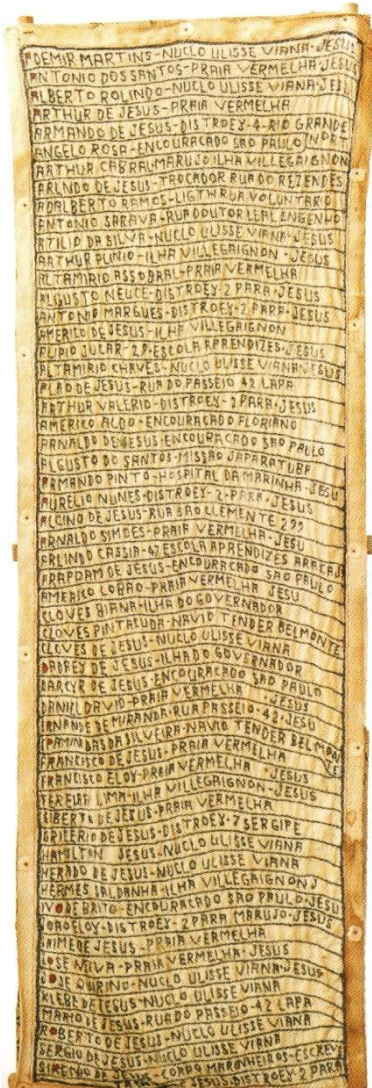 ADEMIR MARTINS-NUCLO ULISSE VIANA-JESUS
ANTONIO DOS SANTOS-PRAIA VERMELHA-JESUS
ALBERTO ROLINDO-NUCLO ULISSE VIANA-JESU
ARTHUR DE JESUS-PRAIA VERMELHA
ARMANDO DE JESUS-DISTROEY-4-RIO GRANDE
NORTE
ANGELO ROSA-ENCOURACADO SAO PAULO
ARTHUR CABRAL MARUJO ILHA VILLEGAIGNON
ARLNDO DE JESUS-TROCADOR RUA DO REZENDES
ADALBERTO RAMOS-LIGTH RUA VOLUNTARIO
ANTONIO SARAVA-RUA DOUTOR LEAL ENGENHO
ATILIO DA SILVA-NUCLO ULISSE VIANA-JESUS
ARTHUR PLINIO-ILHA VILLEGAIGNON-JESUS
ALTAMIRIO ASSOBRAL-PRAIA VERMELHA
ALGUSTO NEUCE-DISTROEY-2 PARA-JESUS
ANTONIO MARGUES-DISTROEY-2 PARA-JESUS
AMERICO DE JESUS-ILHA VILLEGAIGNON
ALIPIO JUCAR-2P-ESCOLA APRENDIZES-JESUS
ALTAMIRIO CHAVES-NUCLO ULISSE VIANA-JESUS
DE JESUS-RUA DO PASSEIO 42 LAPA
ARTHUR VALERIO-DISTROEY-2 PARA-JESUS
AMERICO ALDO-ENCOURACADO FLORIANO
ARNALDO DE JESUS-ENCOURACADO SAO PAULO
ALGUSTO DO SANTOS-MISSAO JAPARATUBA
ARMANDO PINTO-HOSPITAL DA MARINHA-JESU
AURELIO NUNES-DISTROEY-2-PARA-JESUS
ALCINO DE JESUS-RUA SAO CLEMENTE
ARNALDO SIMOES-PRAIA VERMELHA-JESU
ARLINDO CASSIA-42 ESCOLA APRENDIZES ARACAJ
DE JESUS-ENCOURACADO SAO PAULO
AMERICO LOBAO-PRAIA VERMELHA JESU
CLOVES BIANA-ILHA DO GOVERNADOR
CLOVES PINTACUDA-NAVIO TENDER BELMONTE
CLOVES DE JESUS-NUCLO ULISSE VIANA
DE JESUS-ILHA DO GOVERNADOR
DARCYR DE JESUS-ENCOURACADO SAO PAULO
DANIEL DAVID-PRAIA VERMELHA-JESUS
DE MIRANDA-RUA PASSEIO-42-JESU
DA SILVEIRA-NAVIO TENDER BELMONTE
FRANCISCO DE JESUS-PRAIA VERMELHA
FRANCISCO ELOY-PRAIA VERMELHA-JESUS
LIMA-ILHA VILLEGAIGNON-JESUS
DE JESUS-PRAIA VERMELHA
DE JESUS-DISTROEY-7 SERGIPE
HAMILTON JESUS-NUCLO ULISSE VIANA
DE JESUS-NUCLO ULISSE VIANA
HERMES SALDANHA-ILHA VILLEGAIGNON J
IVO DE BRITO-ENCOURACADO SAO PAULO-JESU
JOAO ELOY-DISTROEY-2 PARA MARUJO-JESUS
JAIME DE JESUS-PRAIA VERMELHA
JOSE NEIVA-PRAIA VERMELHA-JESUS
JOSE QUIRINO-NUCLO ULISSE VIANA-JESUS
KLEBE DE JESUS-NUCLO ULISSE VIANA
MARIO DE JESUS-RUA DO PASSEIO-42 LAPA
ROBERTO DE JESUS-NUCLO ULISSE VIANA
SERGIO DE JESUS-NUCLO ULISSE VIANA
SIRENIO DE JESUS-CORPO MARINHEIROS-ESCREV
JESUS DISTROEY 2 PARA